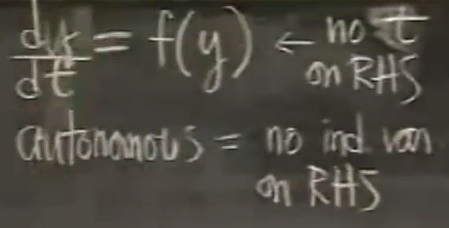 dy/dt = f(y) ← no t
on RHS
autonomous = no ind var
on RHS